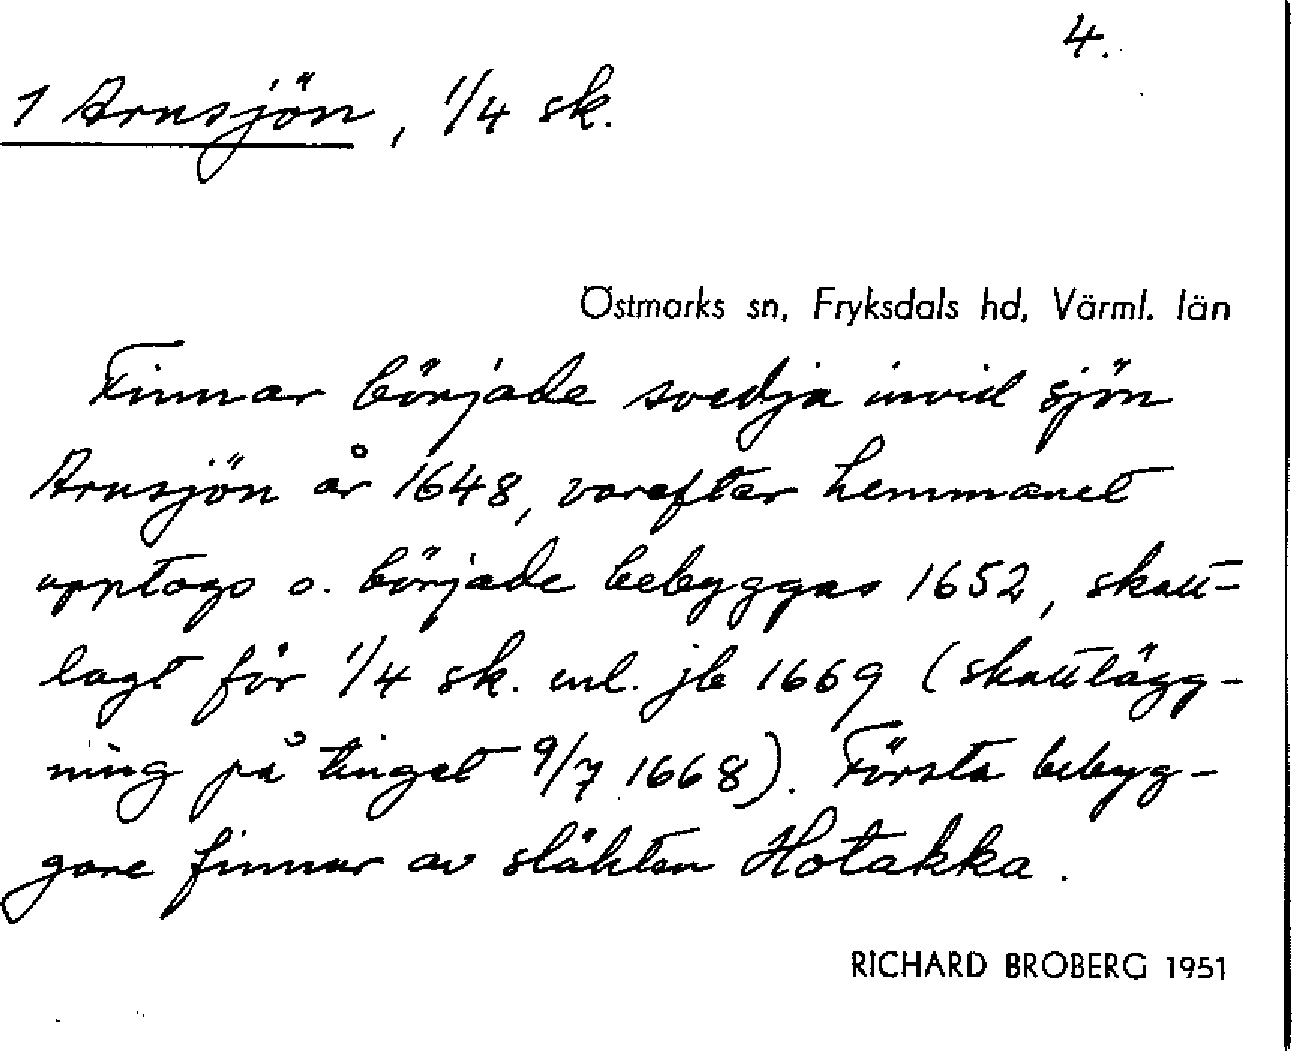 4.
1 Arnsjön, 1/4 sk.
Östmarks sn, Fryksdals hd, Värml. län
Finnar började svedja invid sjön
Arnsjön år 1648, varefter hemmanet
upptogs o. började bebyggas 1652, skatt-
lagt för 1/4 sk. enl. jb 1669 (skattlägg-
ning på tinget 9/7 1668). Första bebyg-
gare finnar av släkten Hotakka.
RICHARD BROBERG 1951